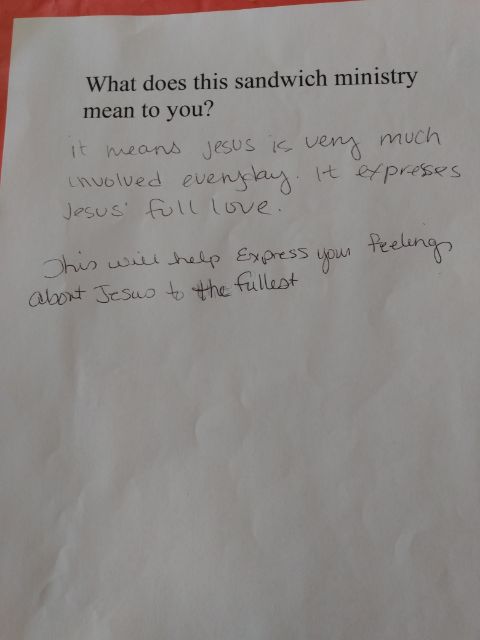 What does this sandwich ministry
mean to you?
it means Jesus is very much
involved everyday. It expresses
Jesus' full love.
This will help Express your feelings
about Jesus to the fullest